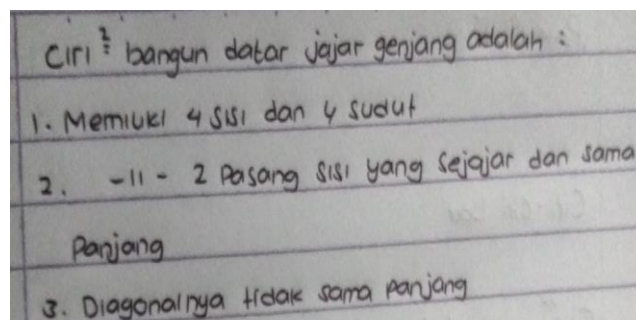 Ciri² bangun datar jajar genjang adalah :
1. Memiliki 4 sisi dan 4 sudut
2. -11- 2 pasang sisi yang sejajar dan sama
panjang
3. Diagonalnya tidak sama panjang